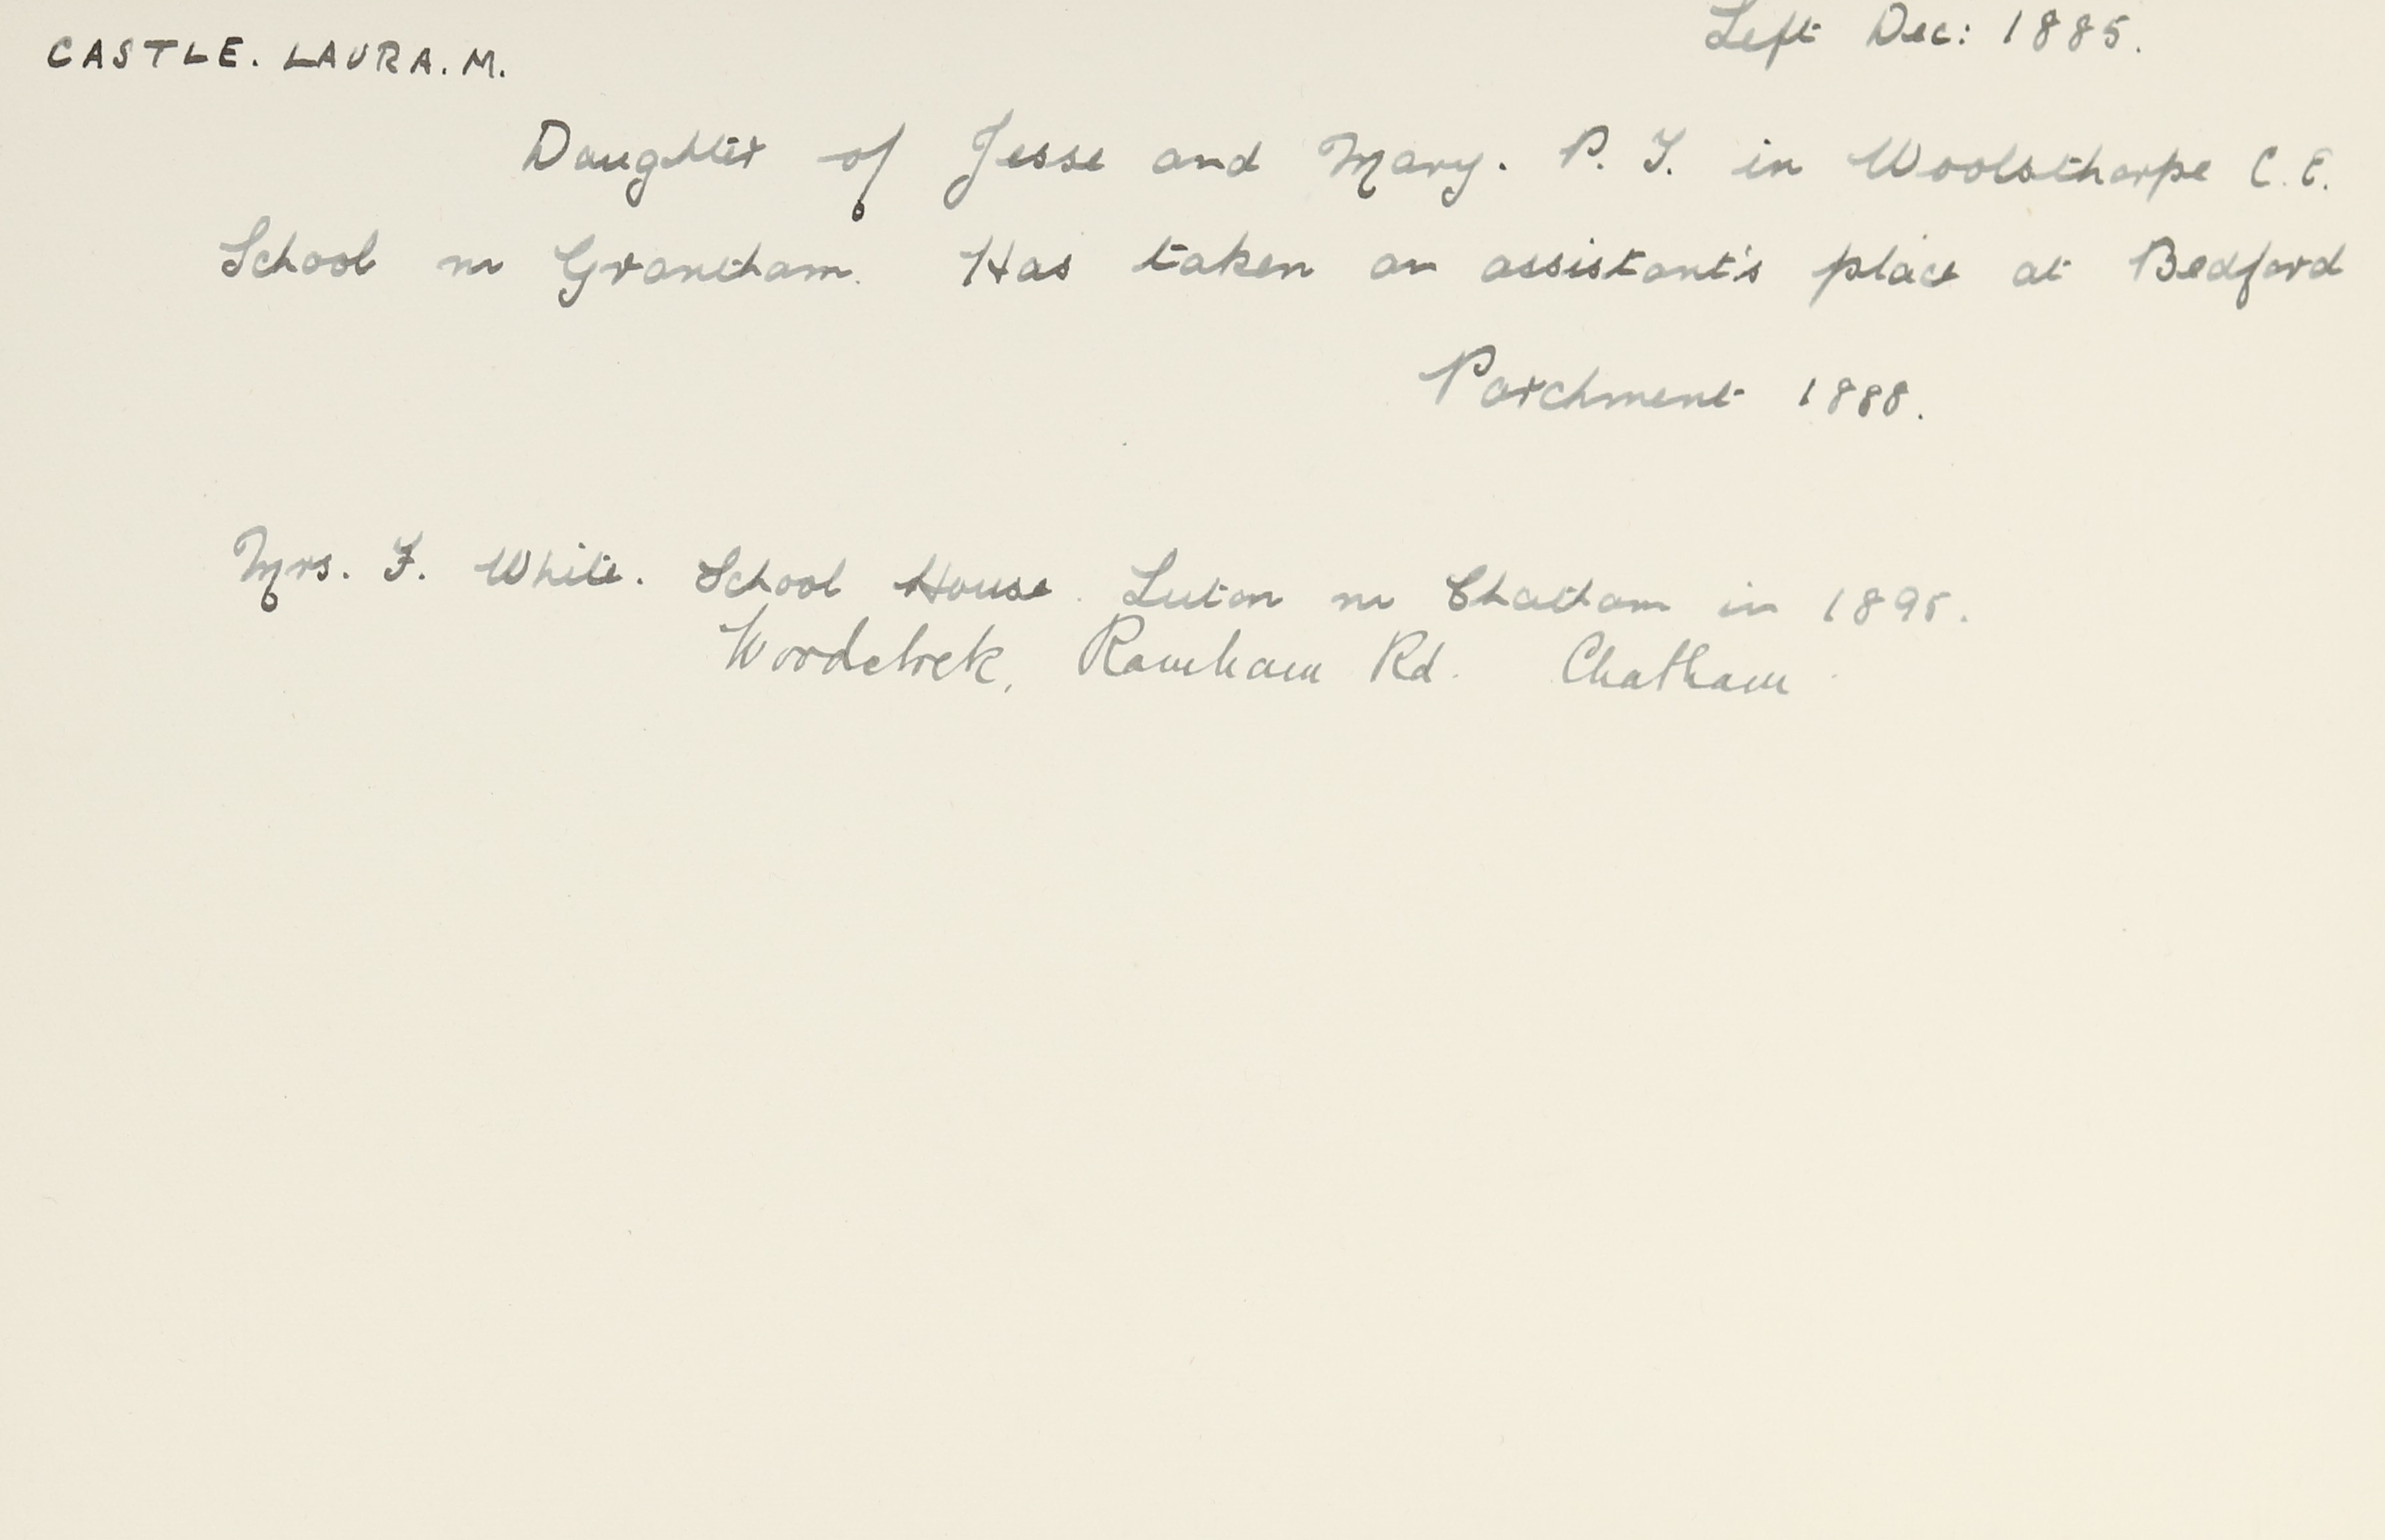 CASTLE. LAURA. M.
Left Dec: 1885.
Daughter of Jesse and Mary. P. T. in Woolsthorpe C. E.
School nr Grantham. Has taken an assistant's place at Bedford
Parchment 1888.
Mrs. F. White. School House. Luton nr Chatham in 1895.
Rainham Rd. Chatham.